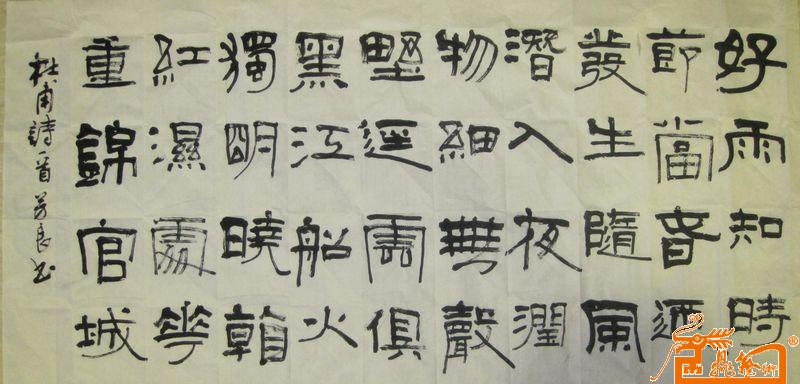 好雨知時
節當春迺
發生隨風
潛入夜潤
物細無聲
野逕雲俱
黑江船火
獨明曉看
紅濕處花
重錦官城
杜甫詩一首 芳良书